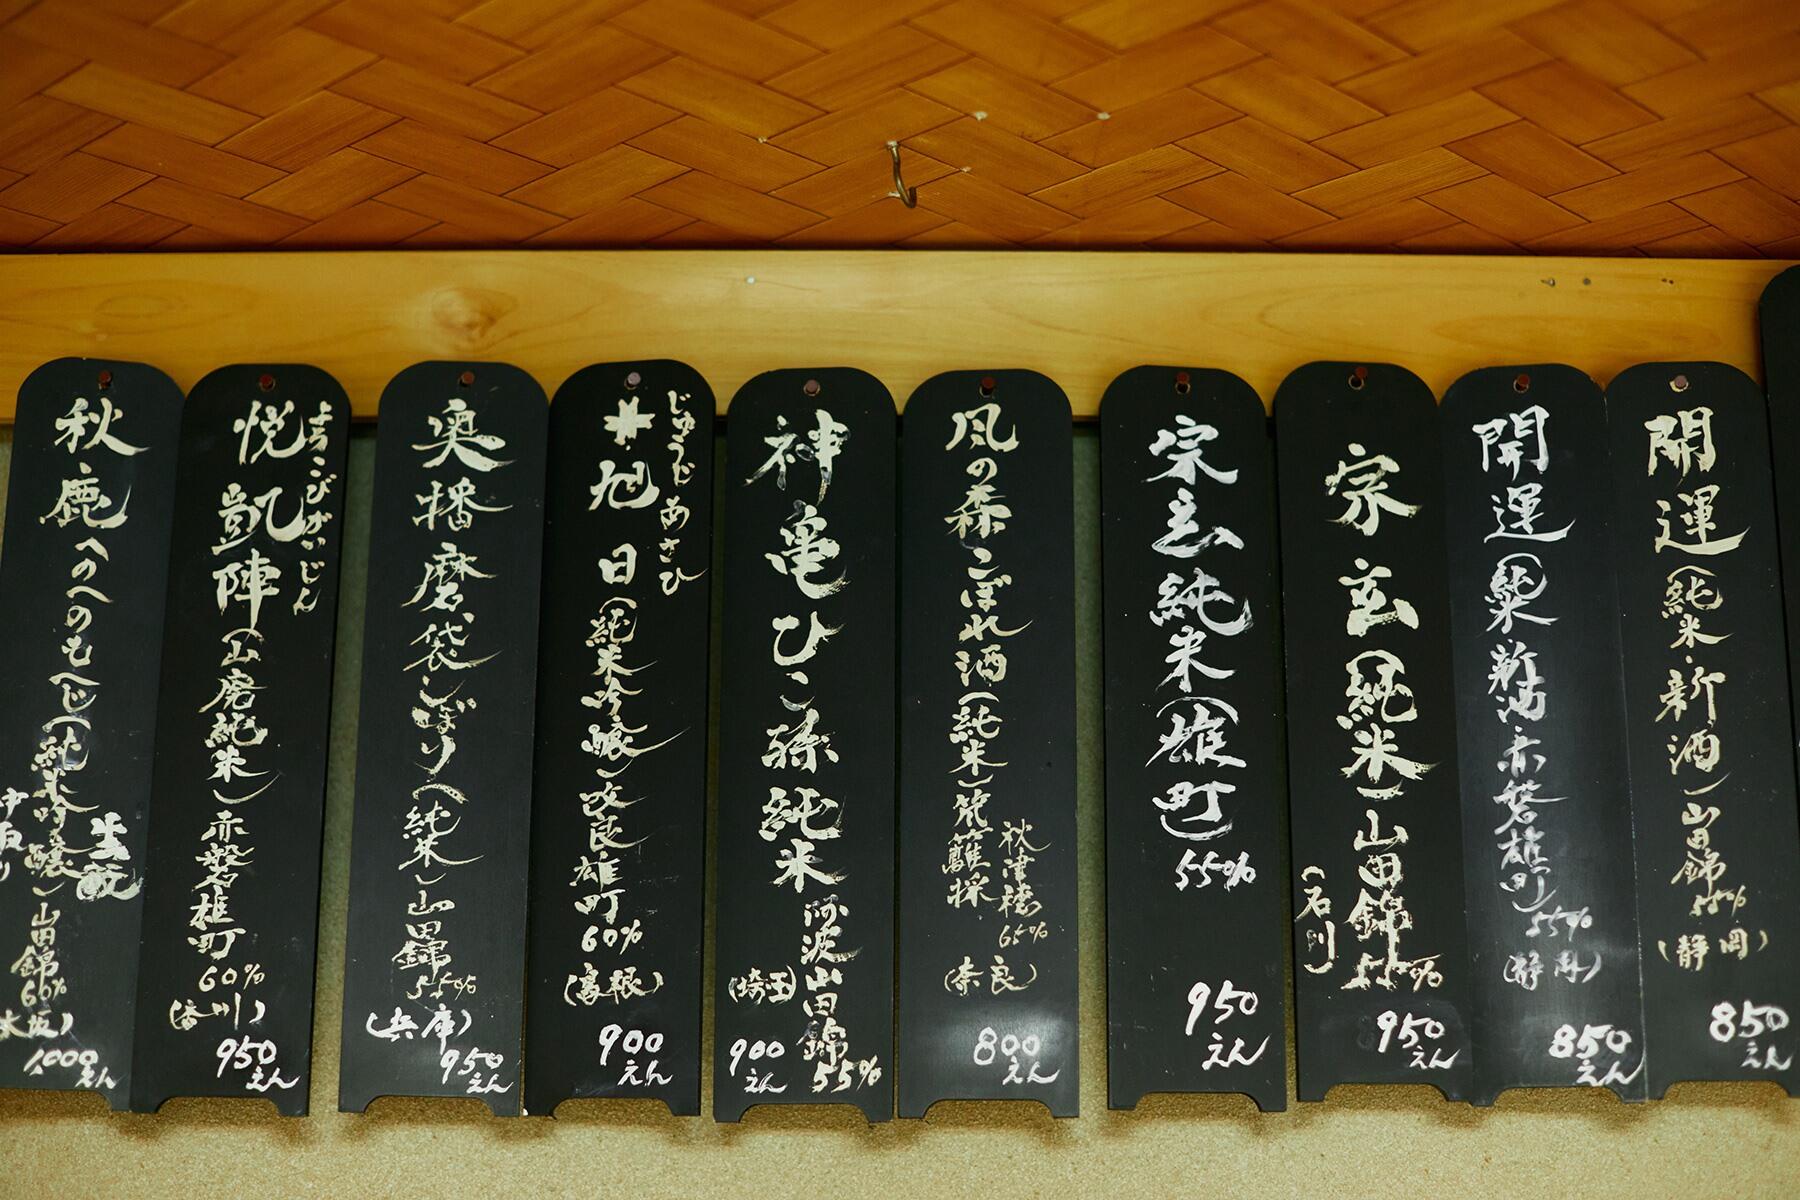 開運(純米・新酒)山田錦
55%
(静岡)
850
えん
開運(純米)新酒赤磐雄町
55%
(静岡)
850
えん
宗玄(純米)山田錦
55%
(石川)
950
えん
宗玄純米(雄町)
55%
950
えん
風の森こぼれ酒(純米)笊籬採
秋津穂
65%
(奈良)
800
えん
神亀ひこ孫純米
阿波山田錦
55%
(埼玉)
900
えん
十旭日(純米吟醸)改良雄町
じゅうじあさひ
60%
(島根)
900
えん
奥播磨袋しぼり(純米)山田錦
55%
(兵庫)
950
えん
悦凱陣(山廃純米)赤磐雄町
よろこびがいじん
60%
(香川)
950
えん
秋鹿へのへのもへじ(純米吟醸)山田錦
生酛
中取り
60%
大阪)
1000
えん